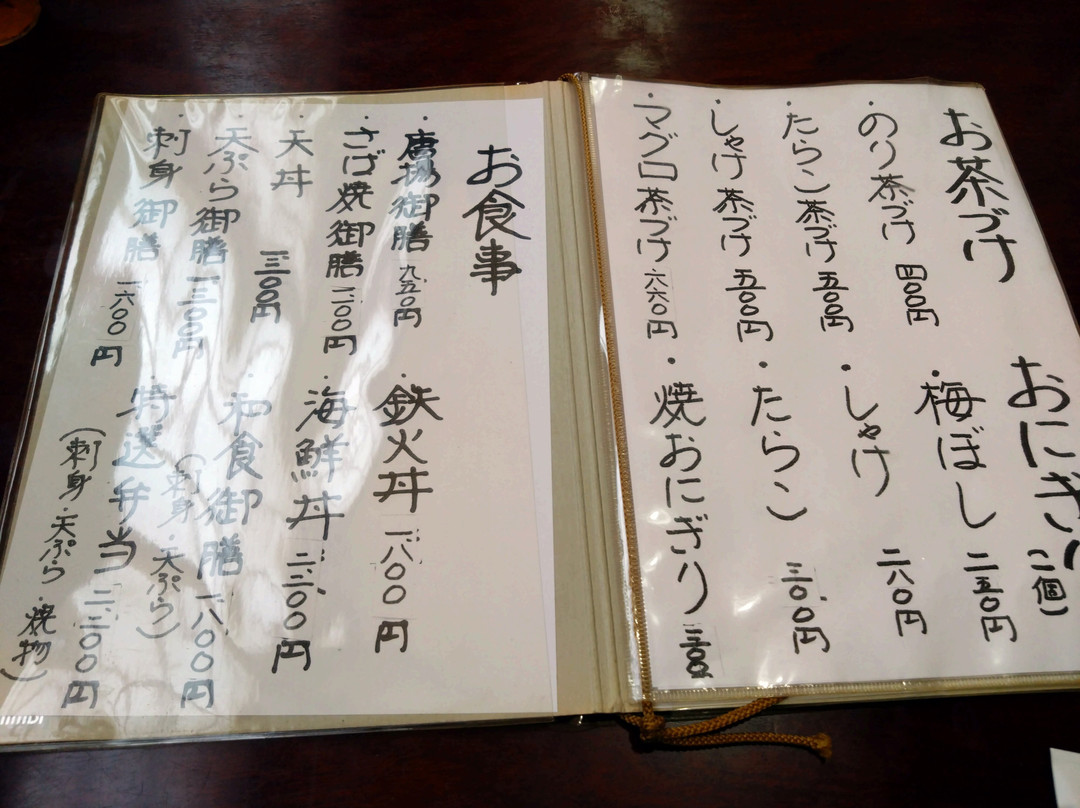 お茶づけ
・のり茶づけ 四〇〇円
・たらこ茶づけ 五〇〇円
・しゃけ茶づけ 五〇〇円
・マグロ茶づけ 六六〇円
おにぎり(一個)
・梅ぼし 二五〇円
・しゃけ 二八〇円
・たらこ 三〇〇円
・焼おにぎり
お食事
・唐揚御膳 九五〇円
・さば焼御膳
・天丼
・天ぷら御膳 一、三〇〇円
・刺身御膳 一、六〇〇円
・鉄火丼 一、八〇〇円
・海鮮丼 二、二〇〇円
・和食御膳 一、八〇〇円
(刺身・天ぷら)
・特選弁当 二、二〇〇円
(刺身・天ぷら・焼物)